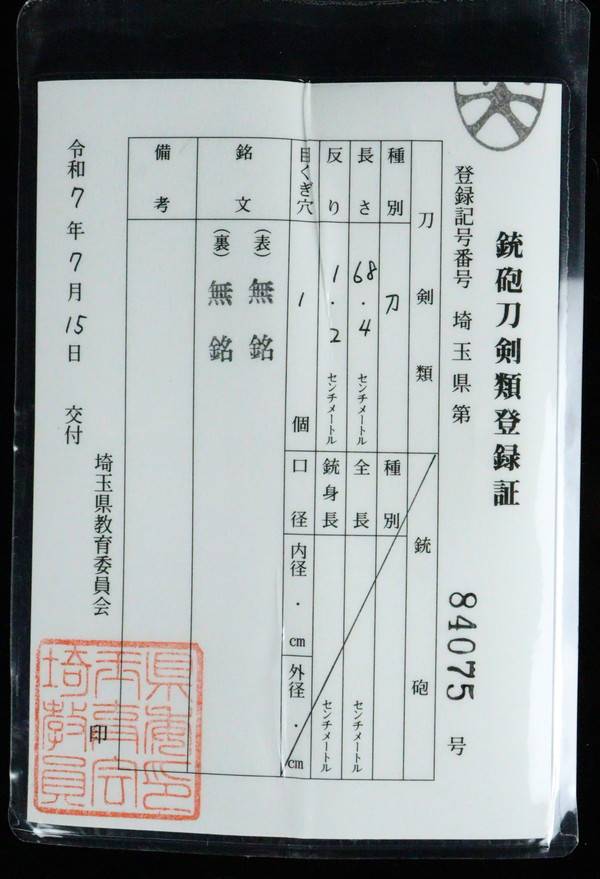 銃砲刀剣類登録証
登録記号番号 埼玉県第 84075 号
刀剣類
種別 刀
長さ 68.4 センチメートル
反り 1.2 センチメートル
目くぎ穴 1 個
銘文
(表) 無銘
(裏) 無銘
備考
銃砲
種別
全長 センチメートル
銃身長 センチメートル
口径 内径 . cm 外径 . cm
令和7年7月15日 交付
埼玉県教育委員会 印